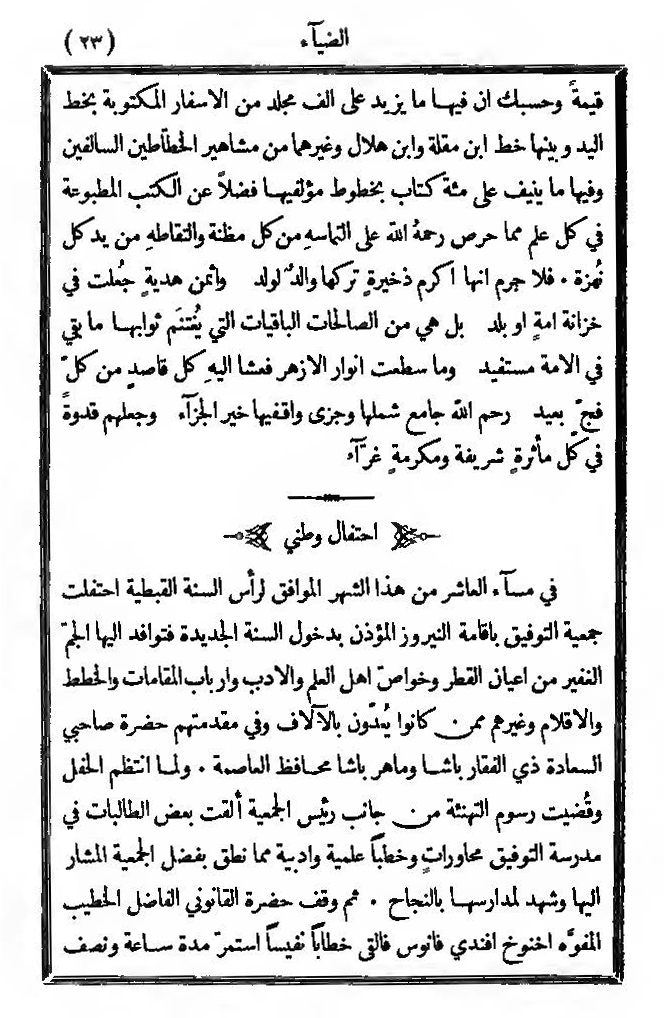 الضيآء
(٢٣)
قيمةً وحسبك ان فيها ما يزيد على الف مجلد من الاسفار المكتوبة بخط
اليد وبينها خط ابن مقلة وابن هلال وغيرهما من مشاهير الخطّاطين السالفين
وفيها ما ينيف على مئة كتاب بخطوط مؤلفيها فضلاً عن الكتب المطبوعة
في كل علم مما حرص رحمهُ الله على التماسهِ من كل مظنة والتقاطهِ من يد كل
نُهزة ٠ فلا جرم انها اكرم ذخيرةٍ تركها والدٌ لولد وأثمن هديةٍ جُعلت في
خزانة امةٍ او بلد بل هي من الصالحات الباقيات التي يُغتنَم ثوابها ما بقي
في الامة مستفيد وما سطعت انوار الازهر فعشا اليهِ كل قاصدٍ من كلّ
فجٍّ بعيد رحم الله جامع شملها وجزى واقفيها خير الجزآء وجعلهم قدوةً
في كل مأثرةٍ شريفة ومكرمةٍ غرّآء
احتفال وطني
في مسآء العاشر من هذا الشهر الموافق لرأس السنة القبطية احتفلت
جمعية التوفيق باقامة النيروز المؤذن بدخول السنة الجديدة فتوافد اليها الجمّ
الغفير من اعيان القطر وخواصّ اهل العلم والادب وارباب المقامات والخطط
والاقلام وغيرهم ممن كانوا يُعَدّون بالآلاف وفي مقدمتهم حضرة صاحبي
السعادة ذي الفقار باشا وماهر باشا محافظ العاصمة ٠ ولما انتظم الحفل
وقُضيت رسوم التهنئة من جانب رئيس الجمعية ألقت بعض الطالبات في
مدرسة التوفيق محاوراتٍ وخطباً علمية وادبية مما نطق بفضل الجمعية المشار
اليها وشهد لمدارسها بالنجاح ٠ ثم وقف حضرة القانوني الفاضل الخطيب
المفوَّه اخنوخ افندي فانوس فالقى خطاباً نفيساً استمرّ مدة ساعة ونصف